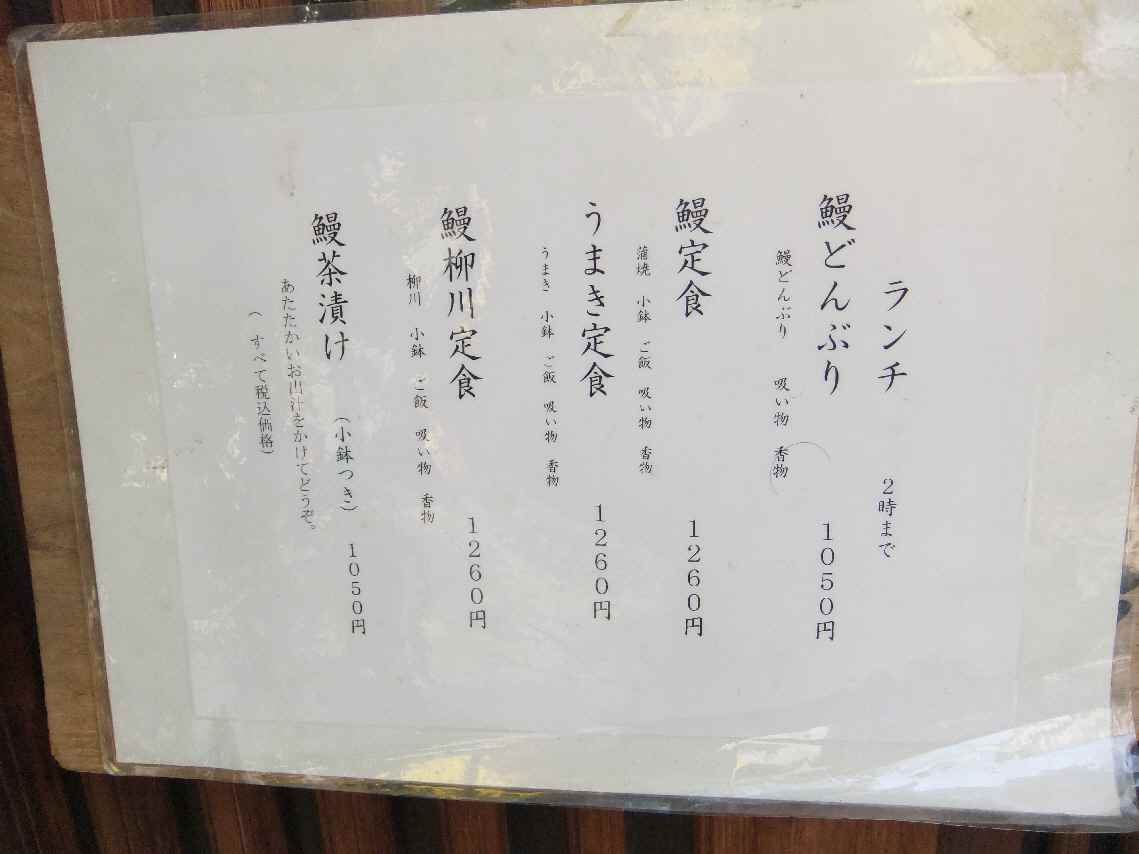 ランチ 2時まで
鰻どんぶり 1050円
鰻どんぶり 吸い物 香物
鰻定食 1260円
蒲焼 小鉢 ご飯 吸い物 香物
うまき定食 1260円
うまき 小鉢 ご飯 吸い物 香物
鰻柳川定食 1260円
柳川 小鉢 ご飯 吸い物 香物
鰻茶漬け (小鉢つき) 1050円
あたたかいお出汁をかけてどうぞ。
( すべて税込価格)